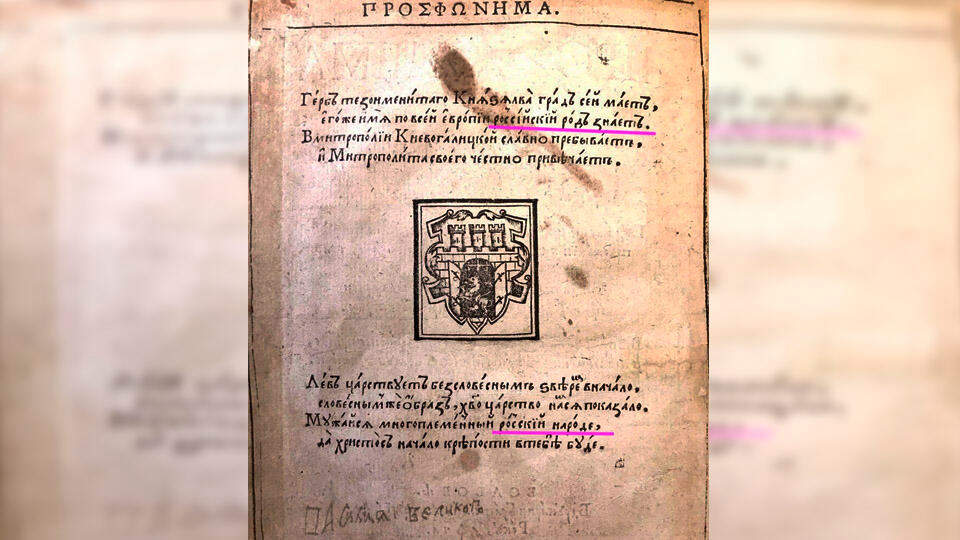 ПРОСФѠНИМА.
Ге́рбъ тезоимени́таго Кнѧ́ѕѧ Лва̀ гра́дъ се́й ма́етъ,
є҆го́же и́мѧ по все́й є҆вро́пїи росі́йскїй ро́дъ зна́етъ.
В митропо́лїи Кїевогали́цкой сла́вно пребыва́етъ,
и҆ Митрополи́та своего̀ че́стно привѣча́етъ.
Ле́въ ца́рствуетъ безслове́снымъ ѕвѣре́м в нача́ло,
слове́сным же ѻ҆́браз, хв҃о ца́рство на́с ѧ показа́ло.
Мужа́йсѧ многоплеме́нный ро́сскїй наро́де,
да̀ христо́съ нача́ло крѣ́пости в тебѣ̀ бу́де.